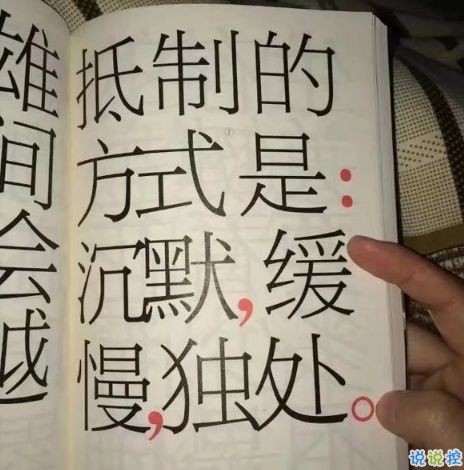 雄
间
会
越
抵制的
方式是：
沉默，缓
慢，独处。
①
说说控